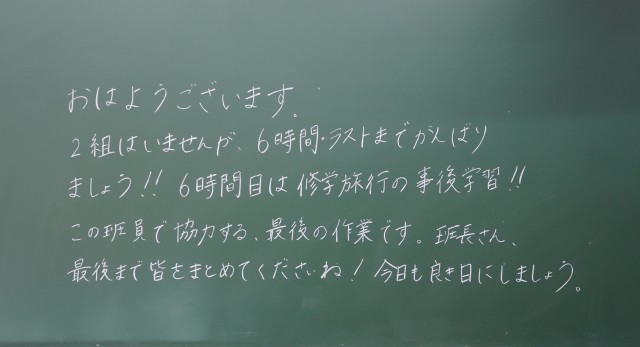 おはようございます。
2組はいませんが、6時間・ラストまでがんばり
ましょう!! 6時間目は修学旅行の事後学習!!
この班員で協力する、最後の作業です。班長さん、
最後まで皆をまとめてくださいね! 今日も良き日にしましょう。